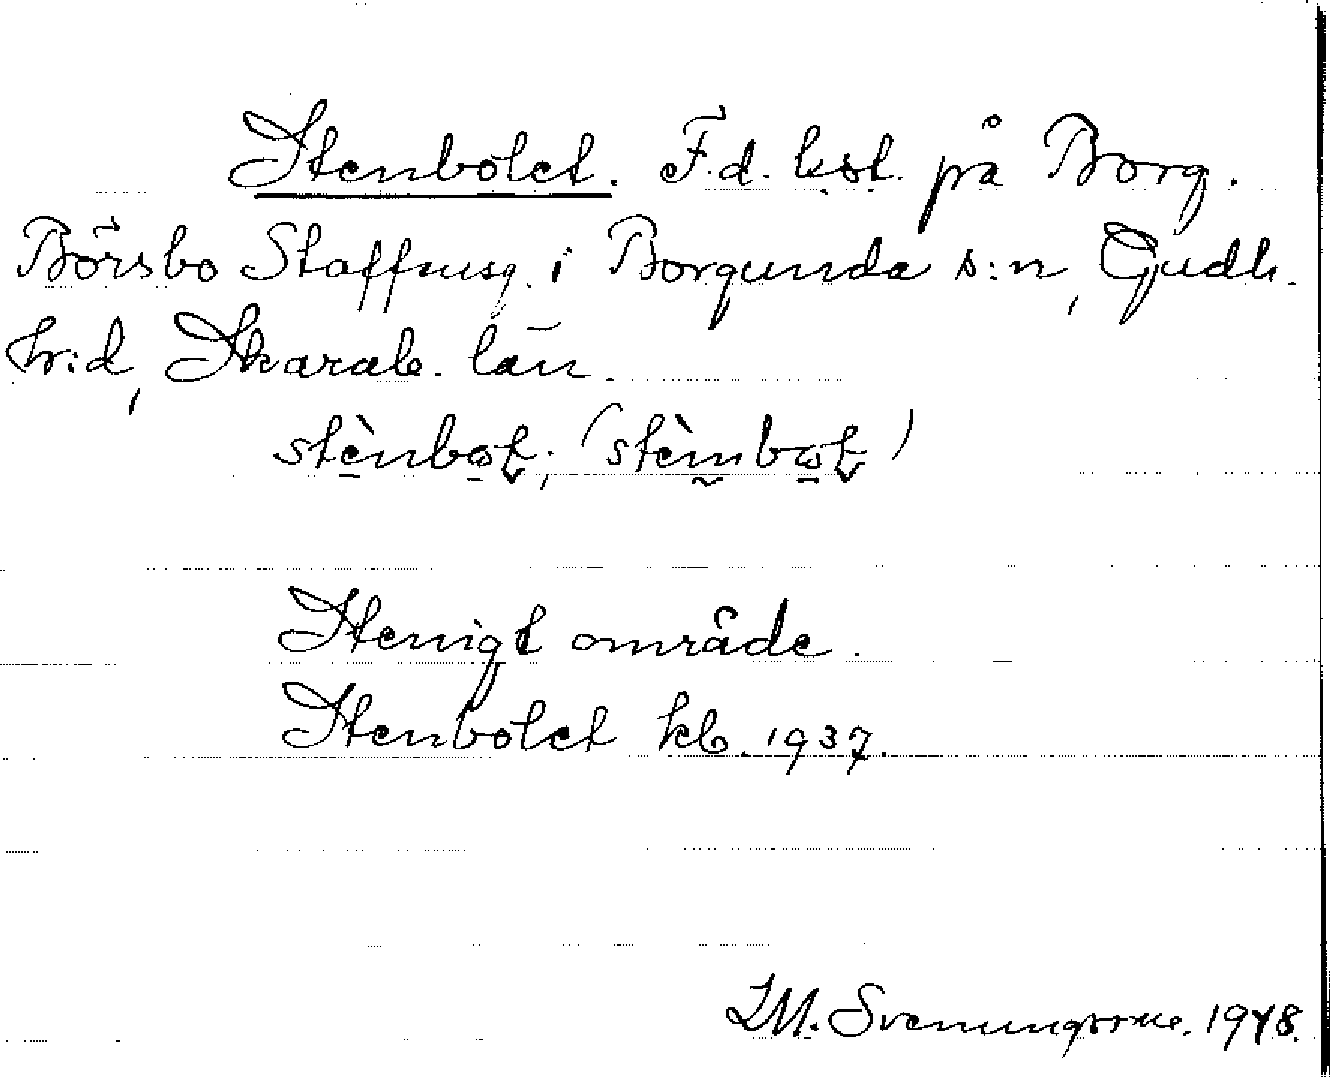 Stenbolet. F.d. bst. på Borg.
Börsbo Staffnsg. i Borgunda s:n, Gudh.
hr:d, Skarab. län.
stènbot; (stèmbot)
Stenigt område.
Stenbolet kb. 1937.
I.M. Svenungsson. 1948.